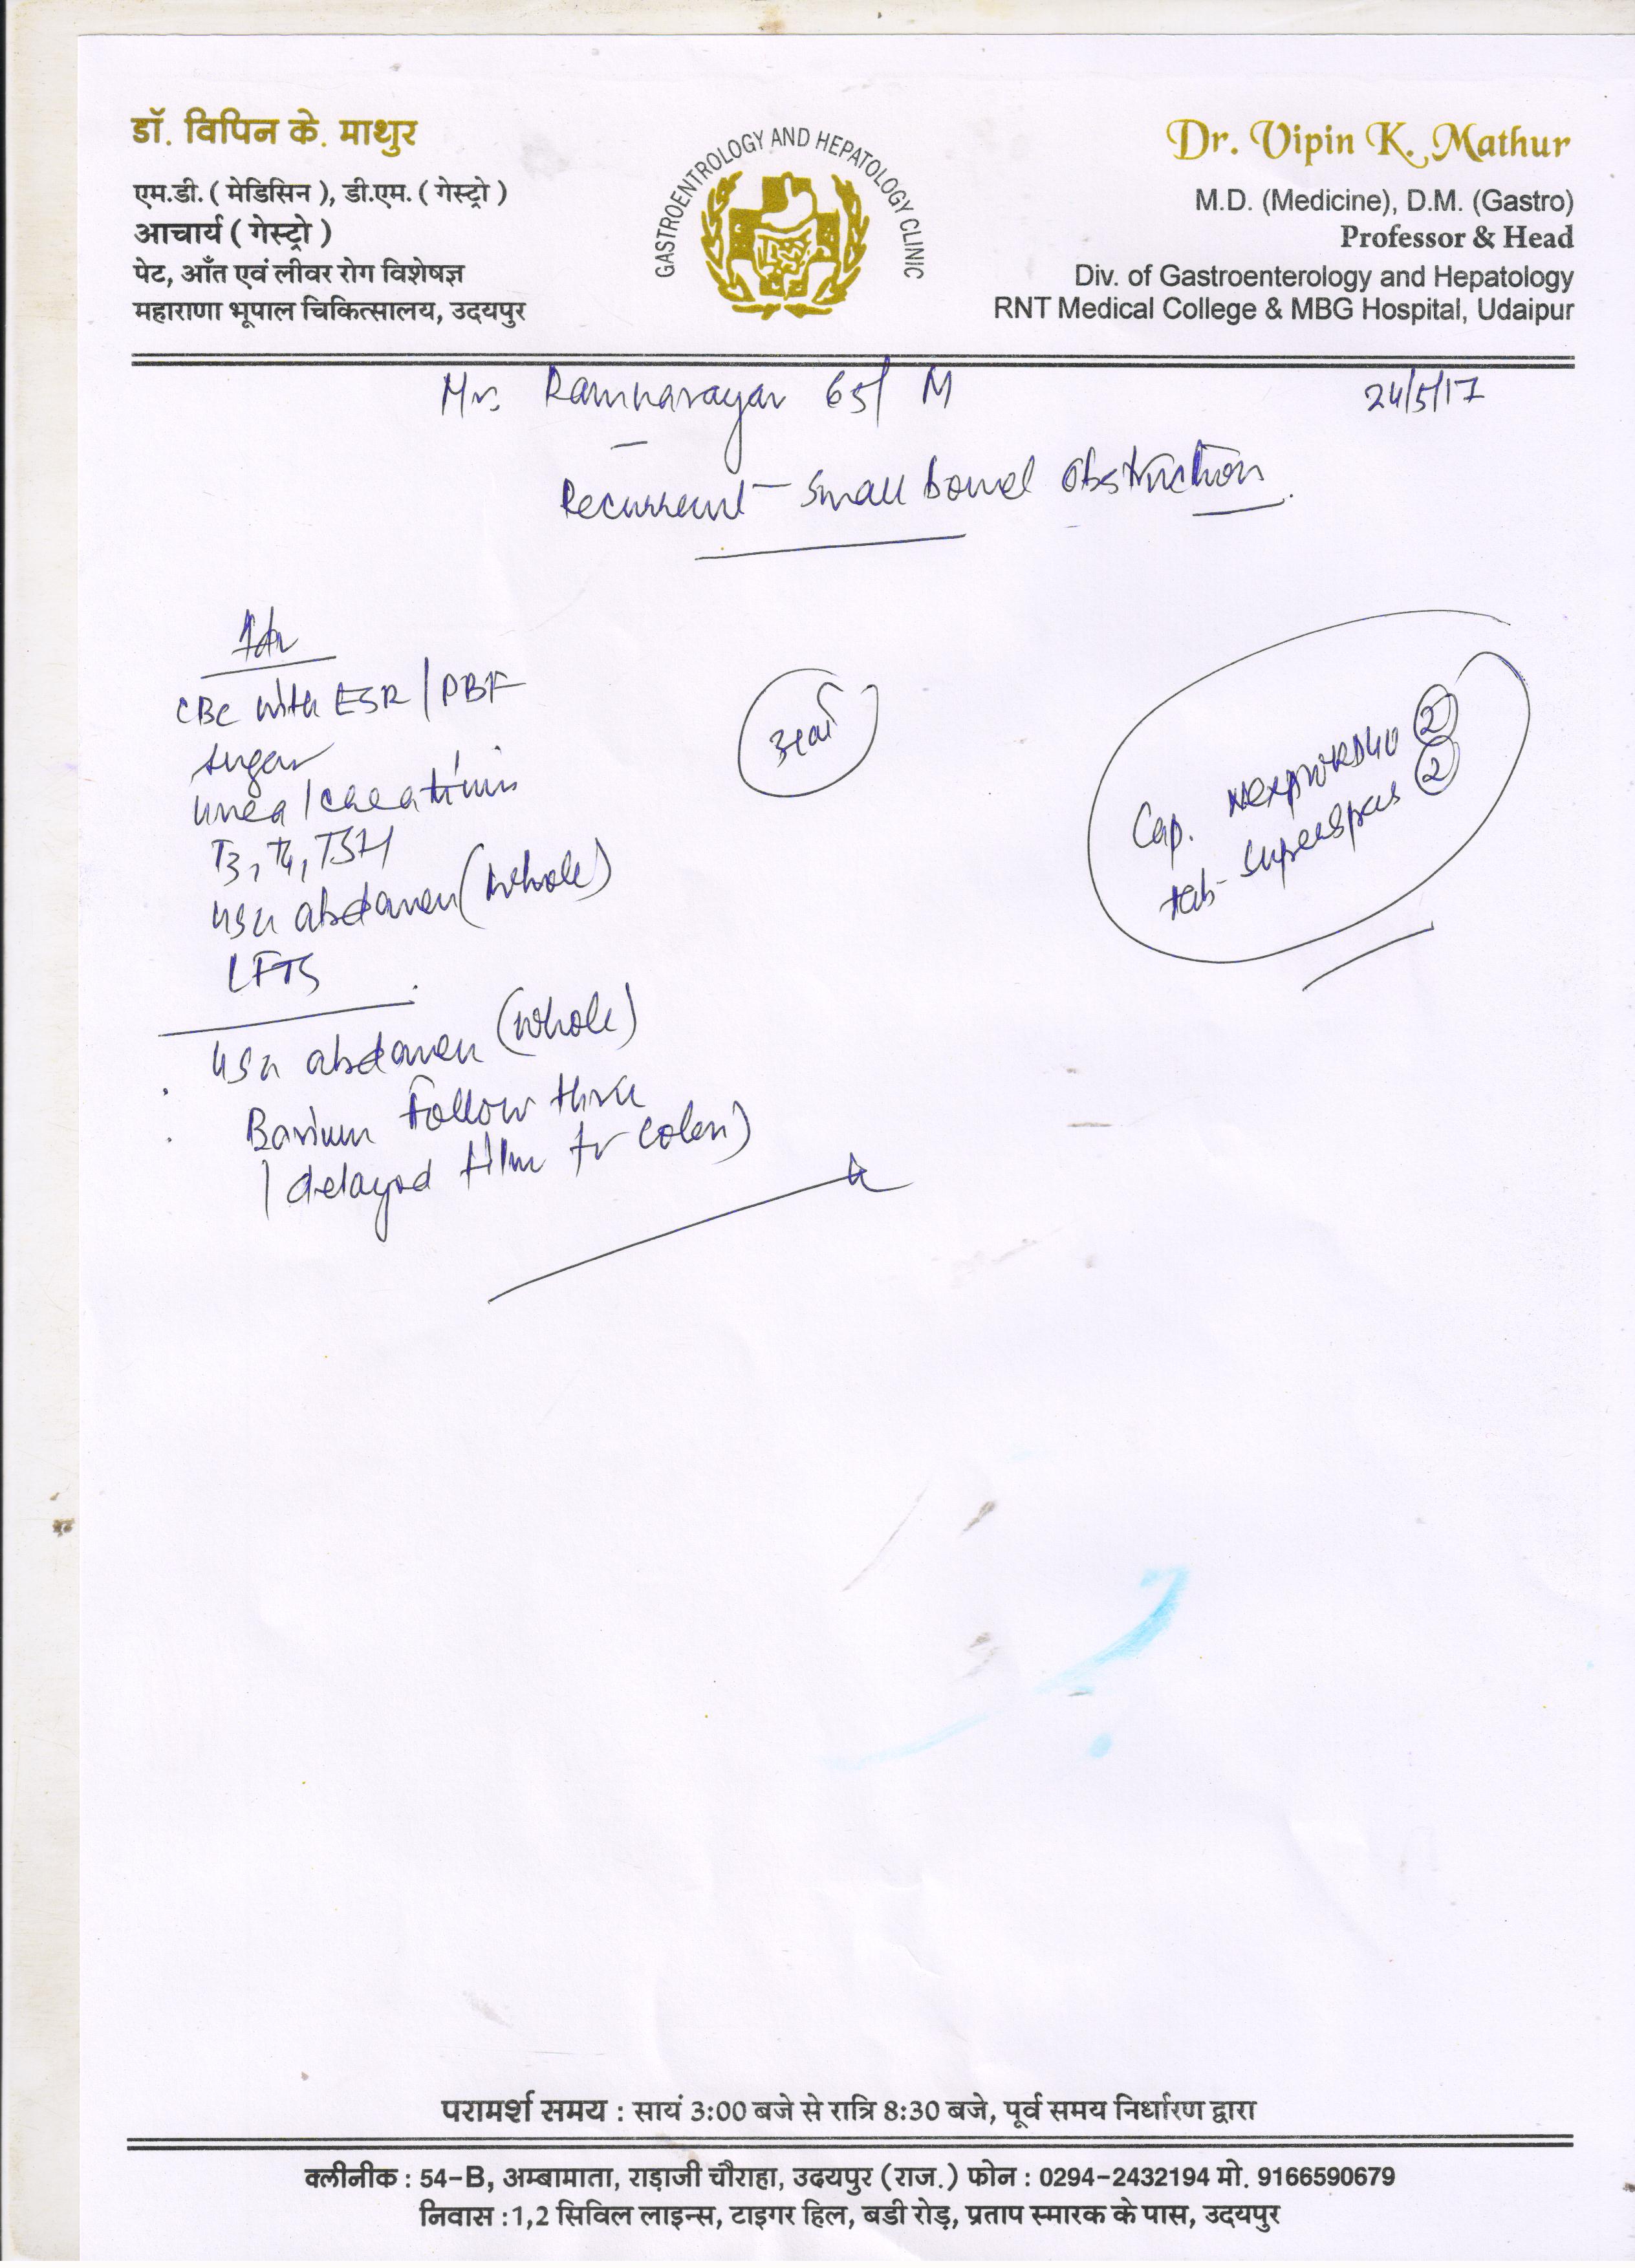 डॉ. विपिन के. माथुर
एम.डी. ( मेडिसिन ), डी.एम. ( गेस्ट्रो )
आचार्य ( गेस्ट्रो )
पेट, आँत एवं लीवर रोग विशेषज्ञ
महाराणा भूपाल चिकित्सालय, उदयपुर
GASTROENTROLOGY AND HEPATOLOGY CLINIC
Dr. Vipin K. Mathur
M.D. (Medicine), D.M. (Gastro)
Professor & Head
Div. of Gastroenterology and Hepatology
RNT Medical College & MBG Hospital, Udaipur
Mr. Ramnarayan 65/ M
24/5/17
Recurrent small bowel obstruction
CBC with ESR / PBF
sugar
urea / creatinine
T3, T4, TSH
USG abdomen (whole)
LFTS
USG abdomen (whole)
Barium Follow thru
(delayed film for colon)
Cap. 2
tab- 2
परामर्श समय : सायं 3:00 बजे से रात्रि 8:30 बजे, पूर्व समय निर्धारण द्वारा
क्लीनीक : 54-B, अम्बामाता, राड़ाजी चौराहा, उदयपुर (राज.) फोन : 0294-2432194 मो. 9166590679
निवास :1,2 सिविल लाइन्स, टाइगर हिल, बडी रोड़, प्रताप स्मारक के पास, उदयपुर